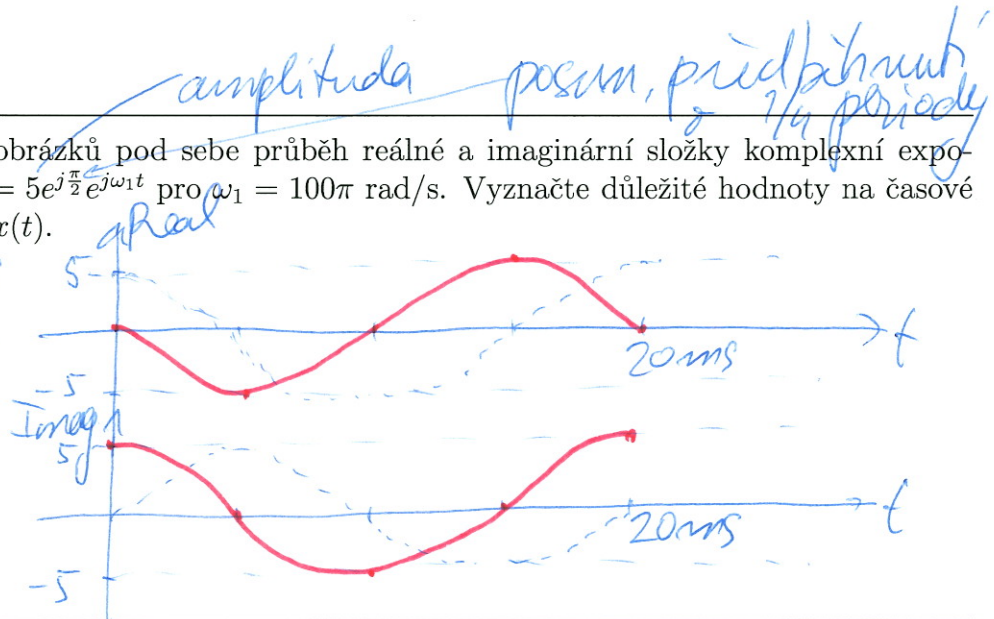 amplituda posun, předběhnutí
o 1/4 periody
obrázků pod sebe průběh reálné a imaginární složky komplexní expo-
= 5e^{j\frac{π}{2}}e^{jω₁t} pro ω₁ = 100π rad/s. Vyznačte důležité hodnoty na časové
x(t).
Real
5
t
20ms
-5
Imag
5
t
20ms
-5